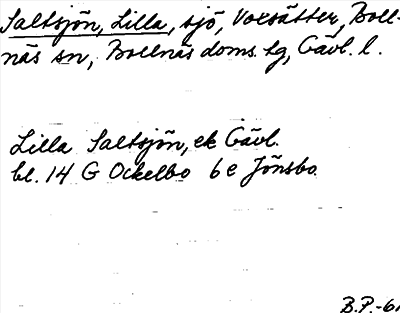 Saltsjön, Lilla, sjö, Voxsätter, Boll-
näs sn, Bollnäs doms. lg, Gävl. l.
Lilla Saltsjön, ek Gävl.
bl. 14 G Ockelbo 6e Jönsbo
B.P.-61